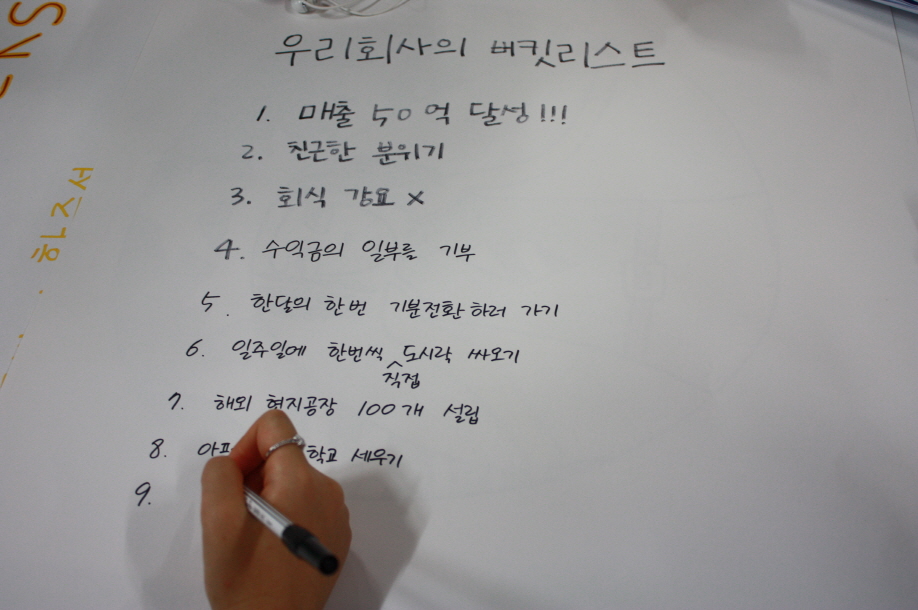 우리회사의 버킷리스트
1. 매출 50억 달성!!!
2. 친근한 분위기
3. 회식 강요 X
4. 수익금의 일부를 기부
5. 한달의 한번 기분전환하러 가기
6. 일주일에 한번씩 도시락 싸오기
직접
7. 해외 현지공장 100개 설립
8. 학교 세우기
9.